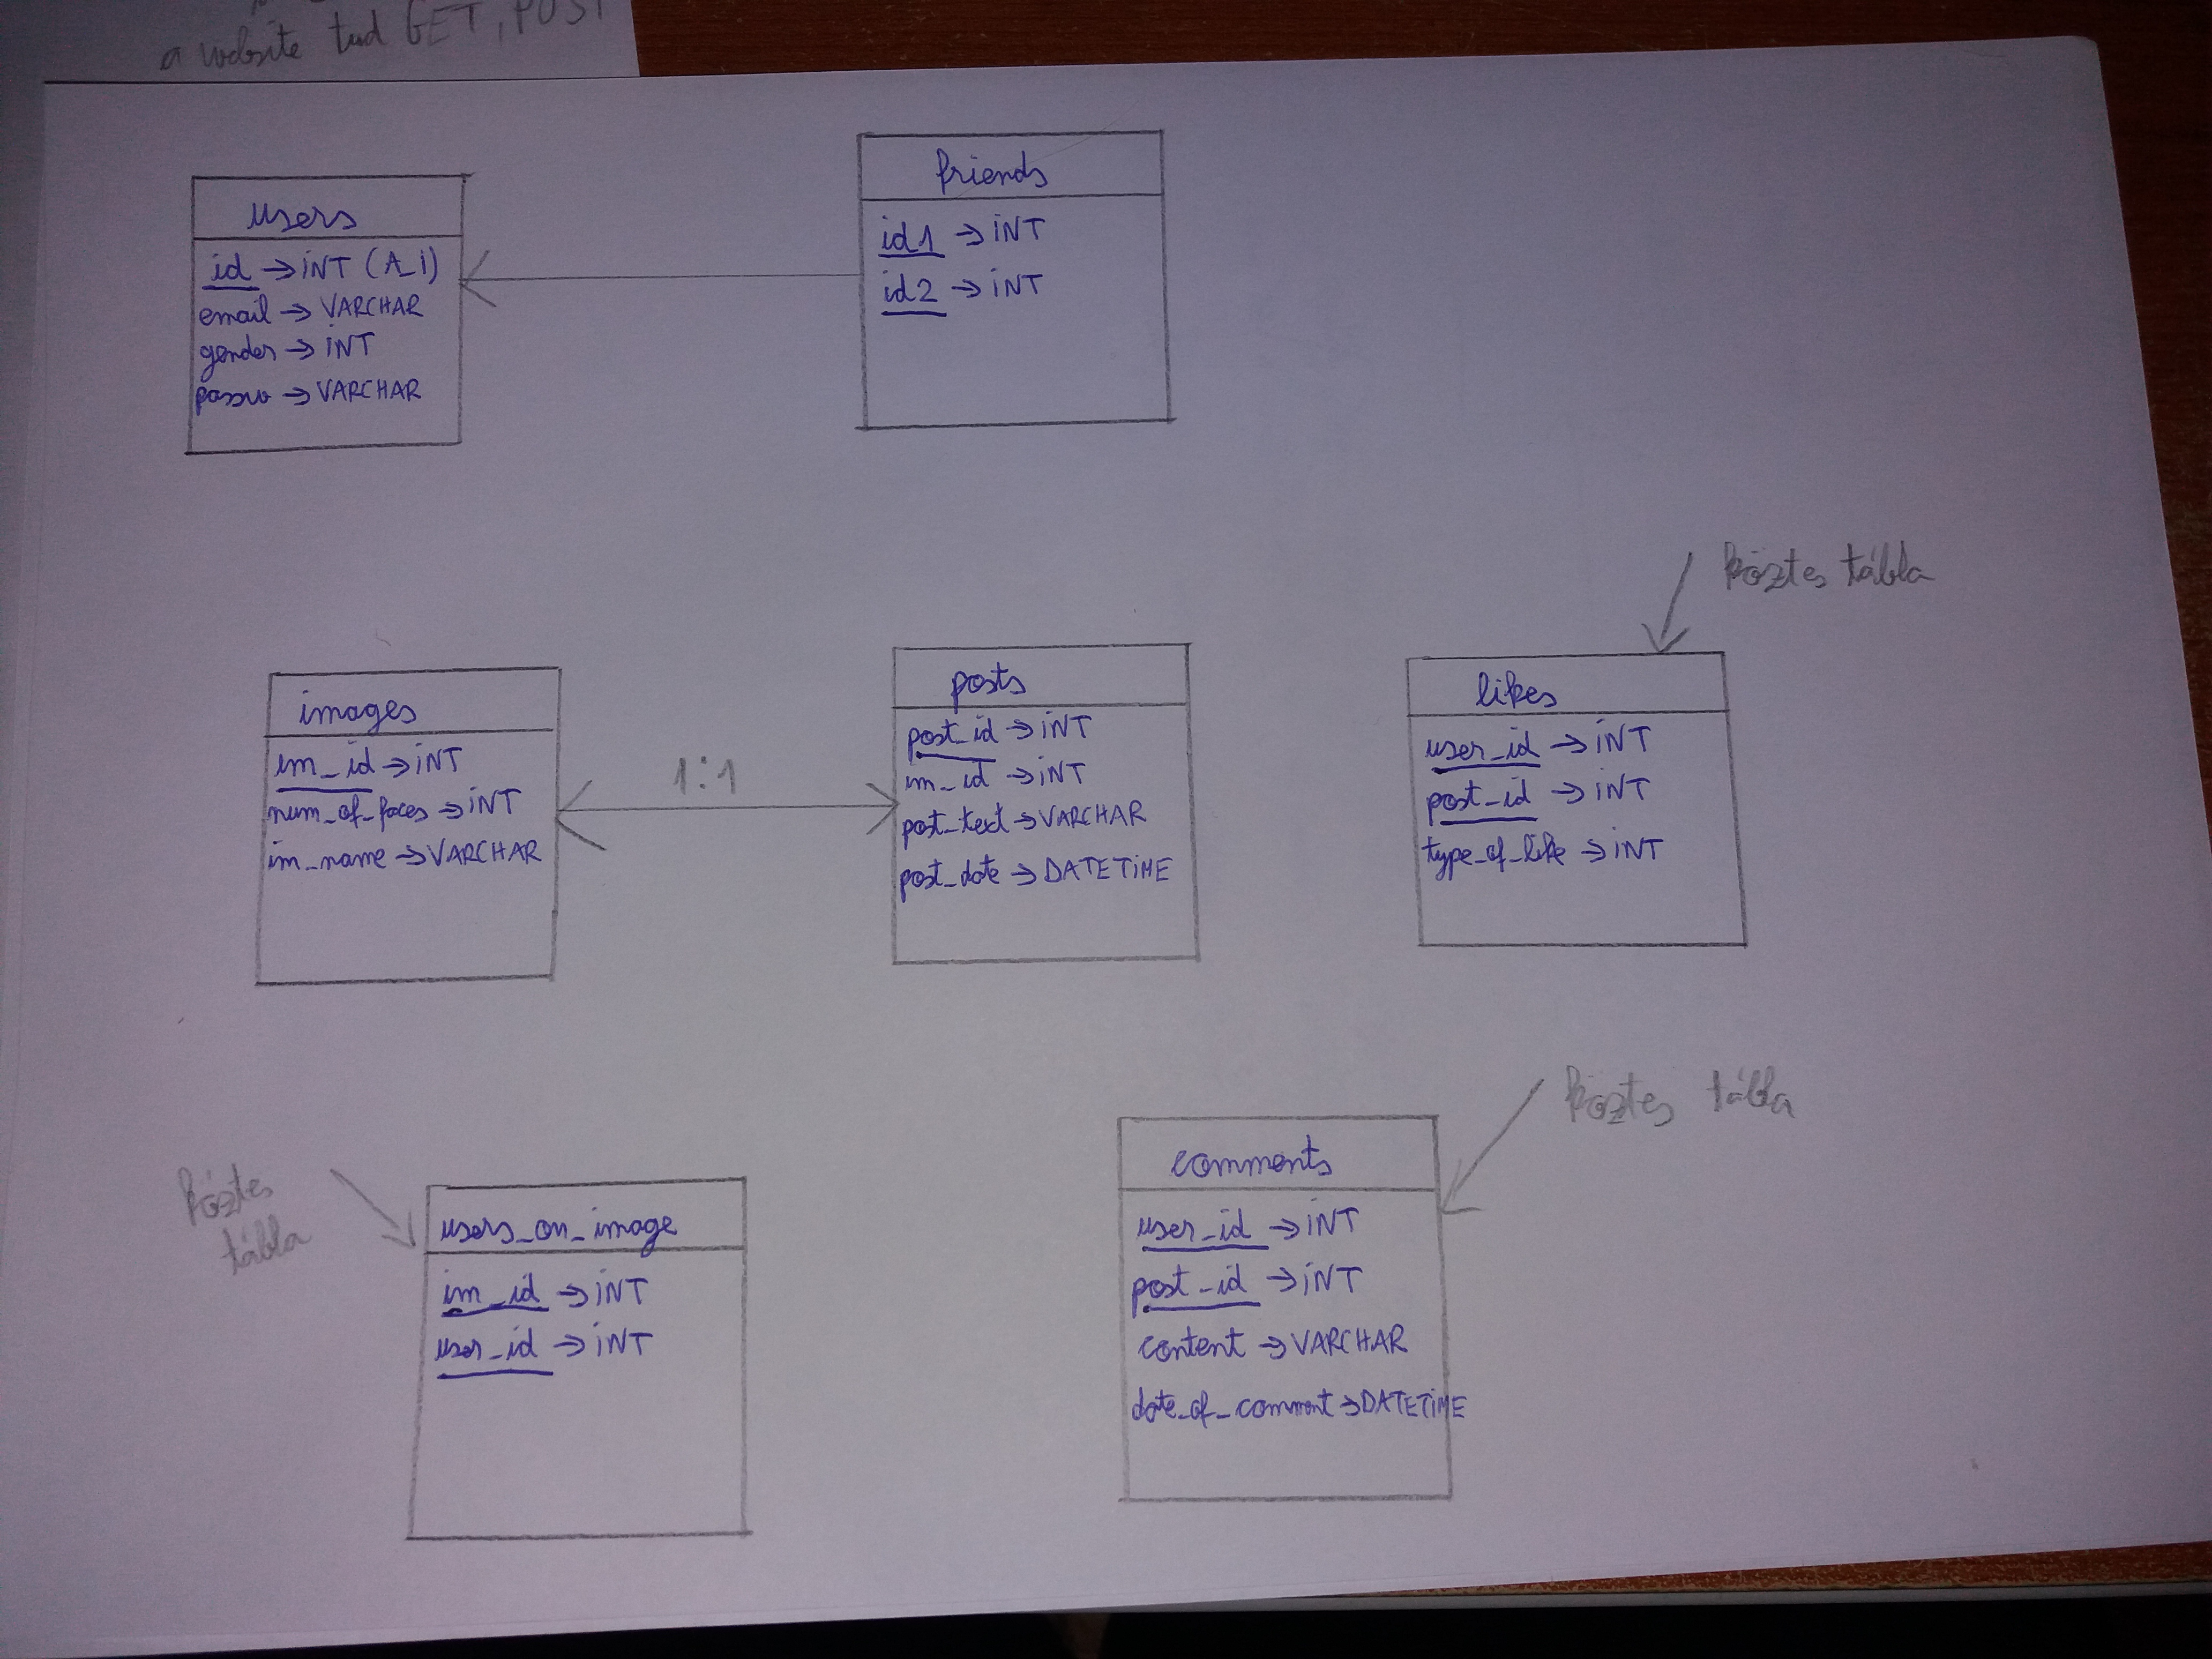 a website tud GET, POST
users
id → INT (A_I)
email → VARCHAR
gender → INT
passw → VARCHAR
friends
id1 → INT
id2 → INT
images
im_id → INT
num_of_faces → INT
im_name → VARCHAR
1:1
posts
post_id → INT
im_id → INT
post_text → VARCHAR
post_date → DATETIME
köztes tábla
likes
user_id → INT
post_id → INT
type_of_like → INT
köztes
tábla
users_on_image
im_id → INT
user_id → INT
köztes tábla
comments
user_id → INT
post_id → INT
content → VARCHAR
date_of_comment → DATETIME